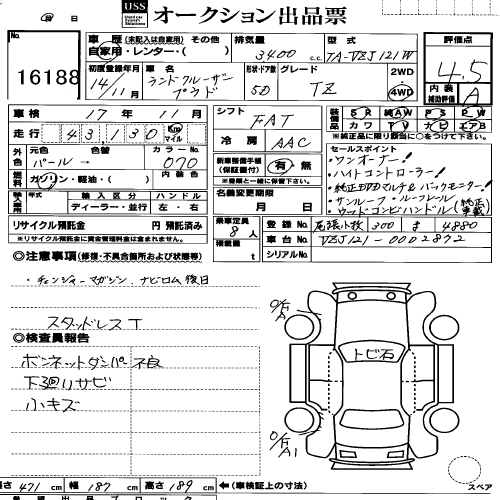 USS オークション出品票
No. 16188
車歴 (未記入は自家用) その他
自家用・レンター・( )
排気量 3400 c.c.
型式 TA-VZJ121W
評価点 4.5
初度登録年月 14/11月
車名 ランドクルーザープラド
形状・ドア数 5D
グレード TZ
2WD
4WD
内装 補助評価 A
車検 17年11月
走行 43130 Km マイル
シフト FAT
冷房 AAC
装備品 SR AW PS PW
カワ TV ナビ エアB
※純正品に限り該当に○をつけて下さい。
外色 元色 パール
色替 →
カラーNo. 070
燃料 ガソリン・軽油・( )
内装色
新車整備手帳 (保証書付) 有・無
セールスポイント
・ワンオーナー!
・ハイトコントローラー!
・純正DVDマルチ&バックモニター!
・サンルーフ・ルーフレール
・ウッドコンビハンドル (純正車載)
輸入車 年式 輸入区分 ハンドル
ディーラー・並行 左・右
名義変更期限 月 日
リサイクル預託金 円 預託済み
※リサイクル預託金に資金管理料金は含まれません。
乗車定員 8人
積載量 t
登録No. 尾張小牧 300 す 4880
車台No. VZJ121-0002872
シリアルNo.
◎注意事項 (修復・不具合箇所および状態等)
・チェンジャーマガジン、ナビロム後日
スタッドレスT
◎検査員報告
ボンネットダンパー不良
下廻りサビ
小キズ
トビ石
A1
長さ 471 cm 幅 187 cm 高さ 189 cm ←(車検証上の寸法)
スペア